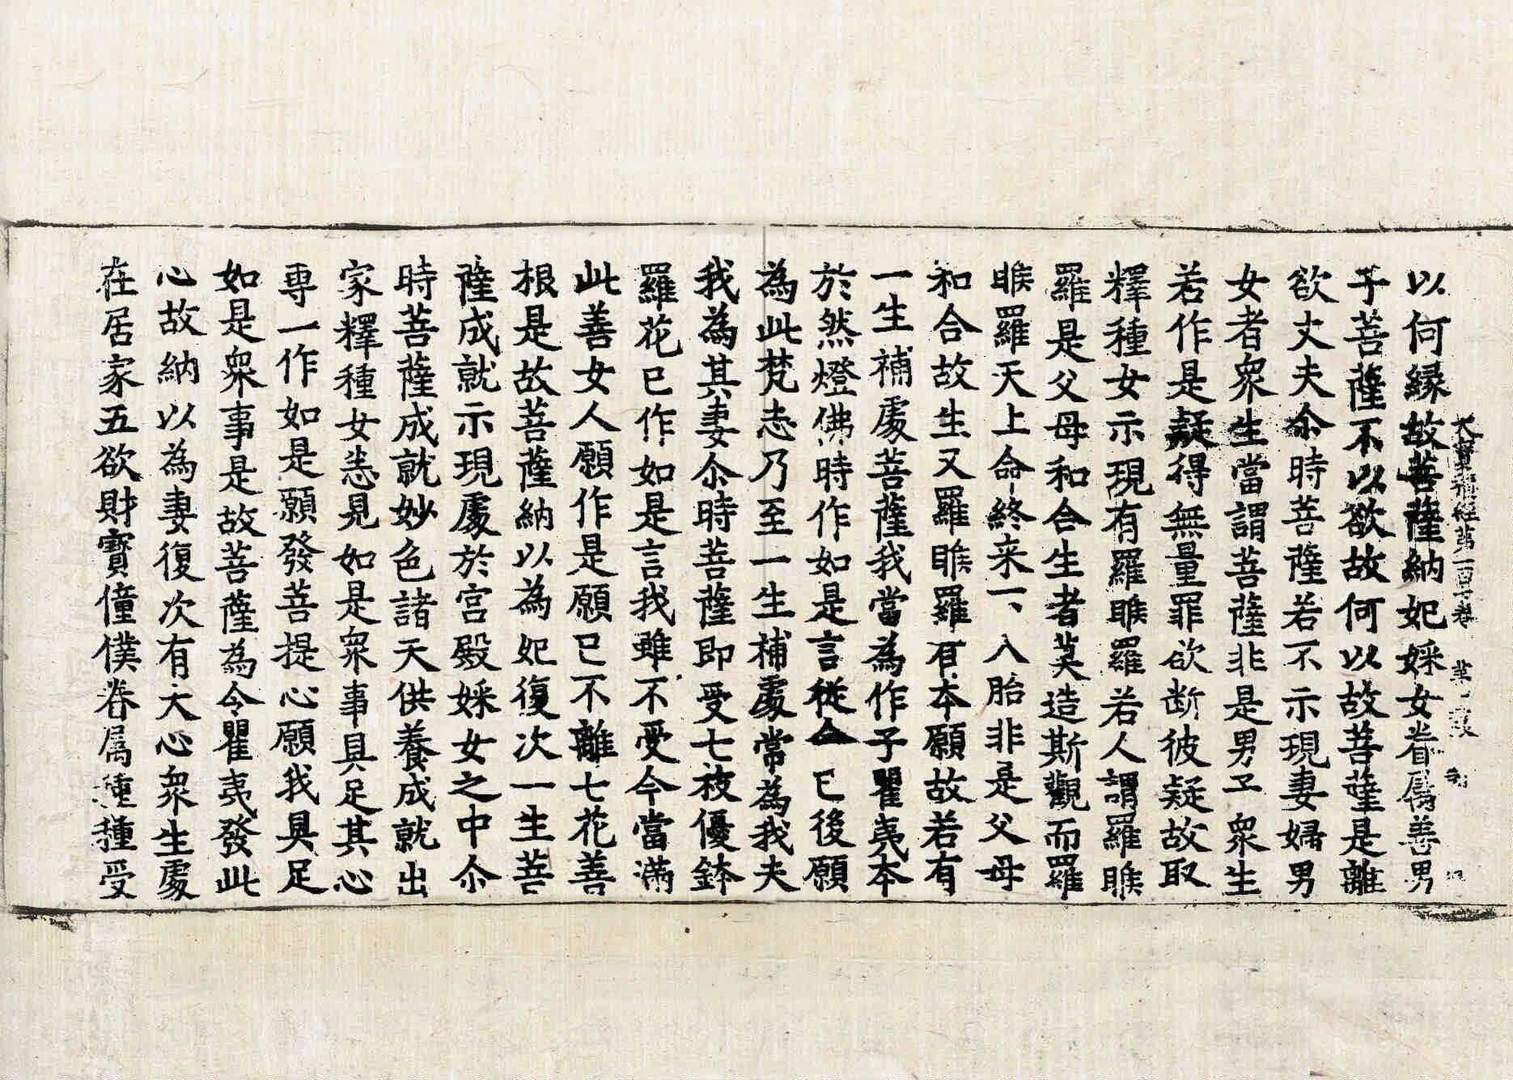 大寶積經第一百七卷
以何縁故菩薩納妃婇女眷属善男
子菩薩不以欲故何以故菩薩是離
欲丈夫尒時菩薩若不示現妻婦男
女者衆生當謂菩薩非是男子衆生
若作是疑得無量罪欲断彼疑故取
釋種女示現有羅睺羅若人謂羅睺
羅是父母和合生者莫造斯觀而羅
睺羅天上命終来一、入胎非是父母
和合故生又羅睺羅有本願故若有
一生補處菩薩我當為作子瞿夷本
於然燈佛時作如是言從今已後願
為此梵志乃至一生補處常為我夫
我為其妻尒時菩薩即受七枚優鉢
羅花已作如是言我雖不受今當滿
此善女人願作是願已不離七花善
根是故菩薩納以為妃復次一生菩
薩成就示現處於宫殿婇女之中尒
時菩薩成就妙色諸天供養成就出
家釋種女悉見如是衆事具足其心
専一作如是願發菩提心願我具足
如是衆事是故菩薩為令瞿夷發此
心故納以為妻復次有大心衆生處
在居家五欲財寳僮僕眷属種種受